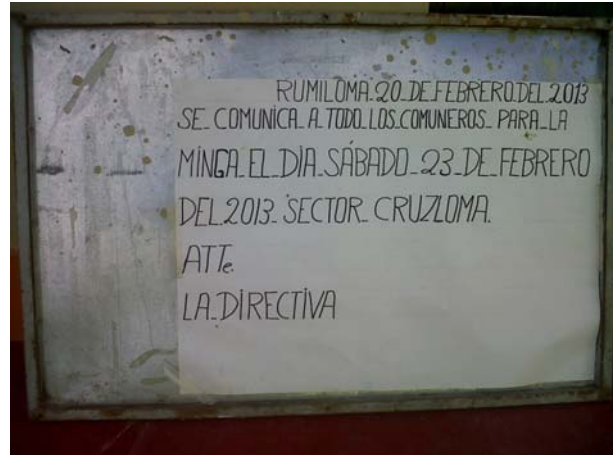 RUMILOMA-20-DE-FEBRERO.DEL.2013
SE-COMUNICA-A-TODO-LOS-COMUNEROS-PARA-LA
MINGA-EL-DIA-SÁBADO-23-DE-FEBRERO
DEL.2013-SECTOR-CRUZLOMA.
ATTe.
LA-DIRECTIVA